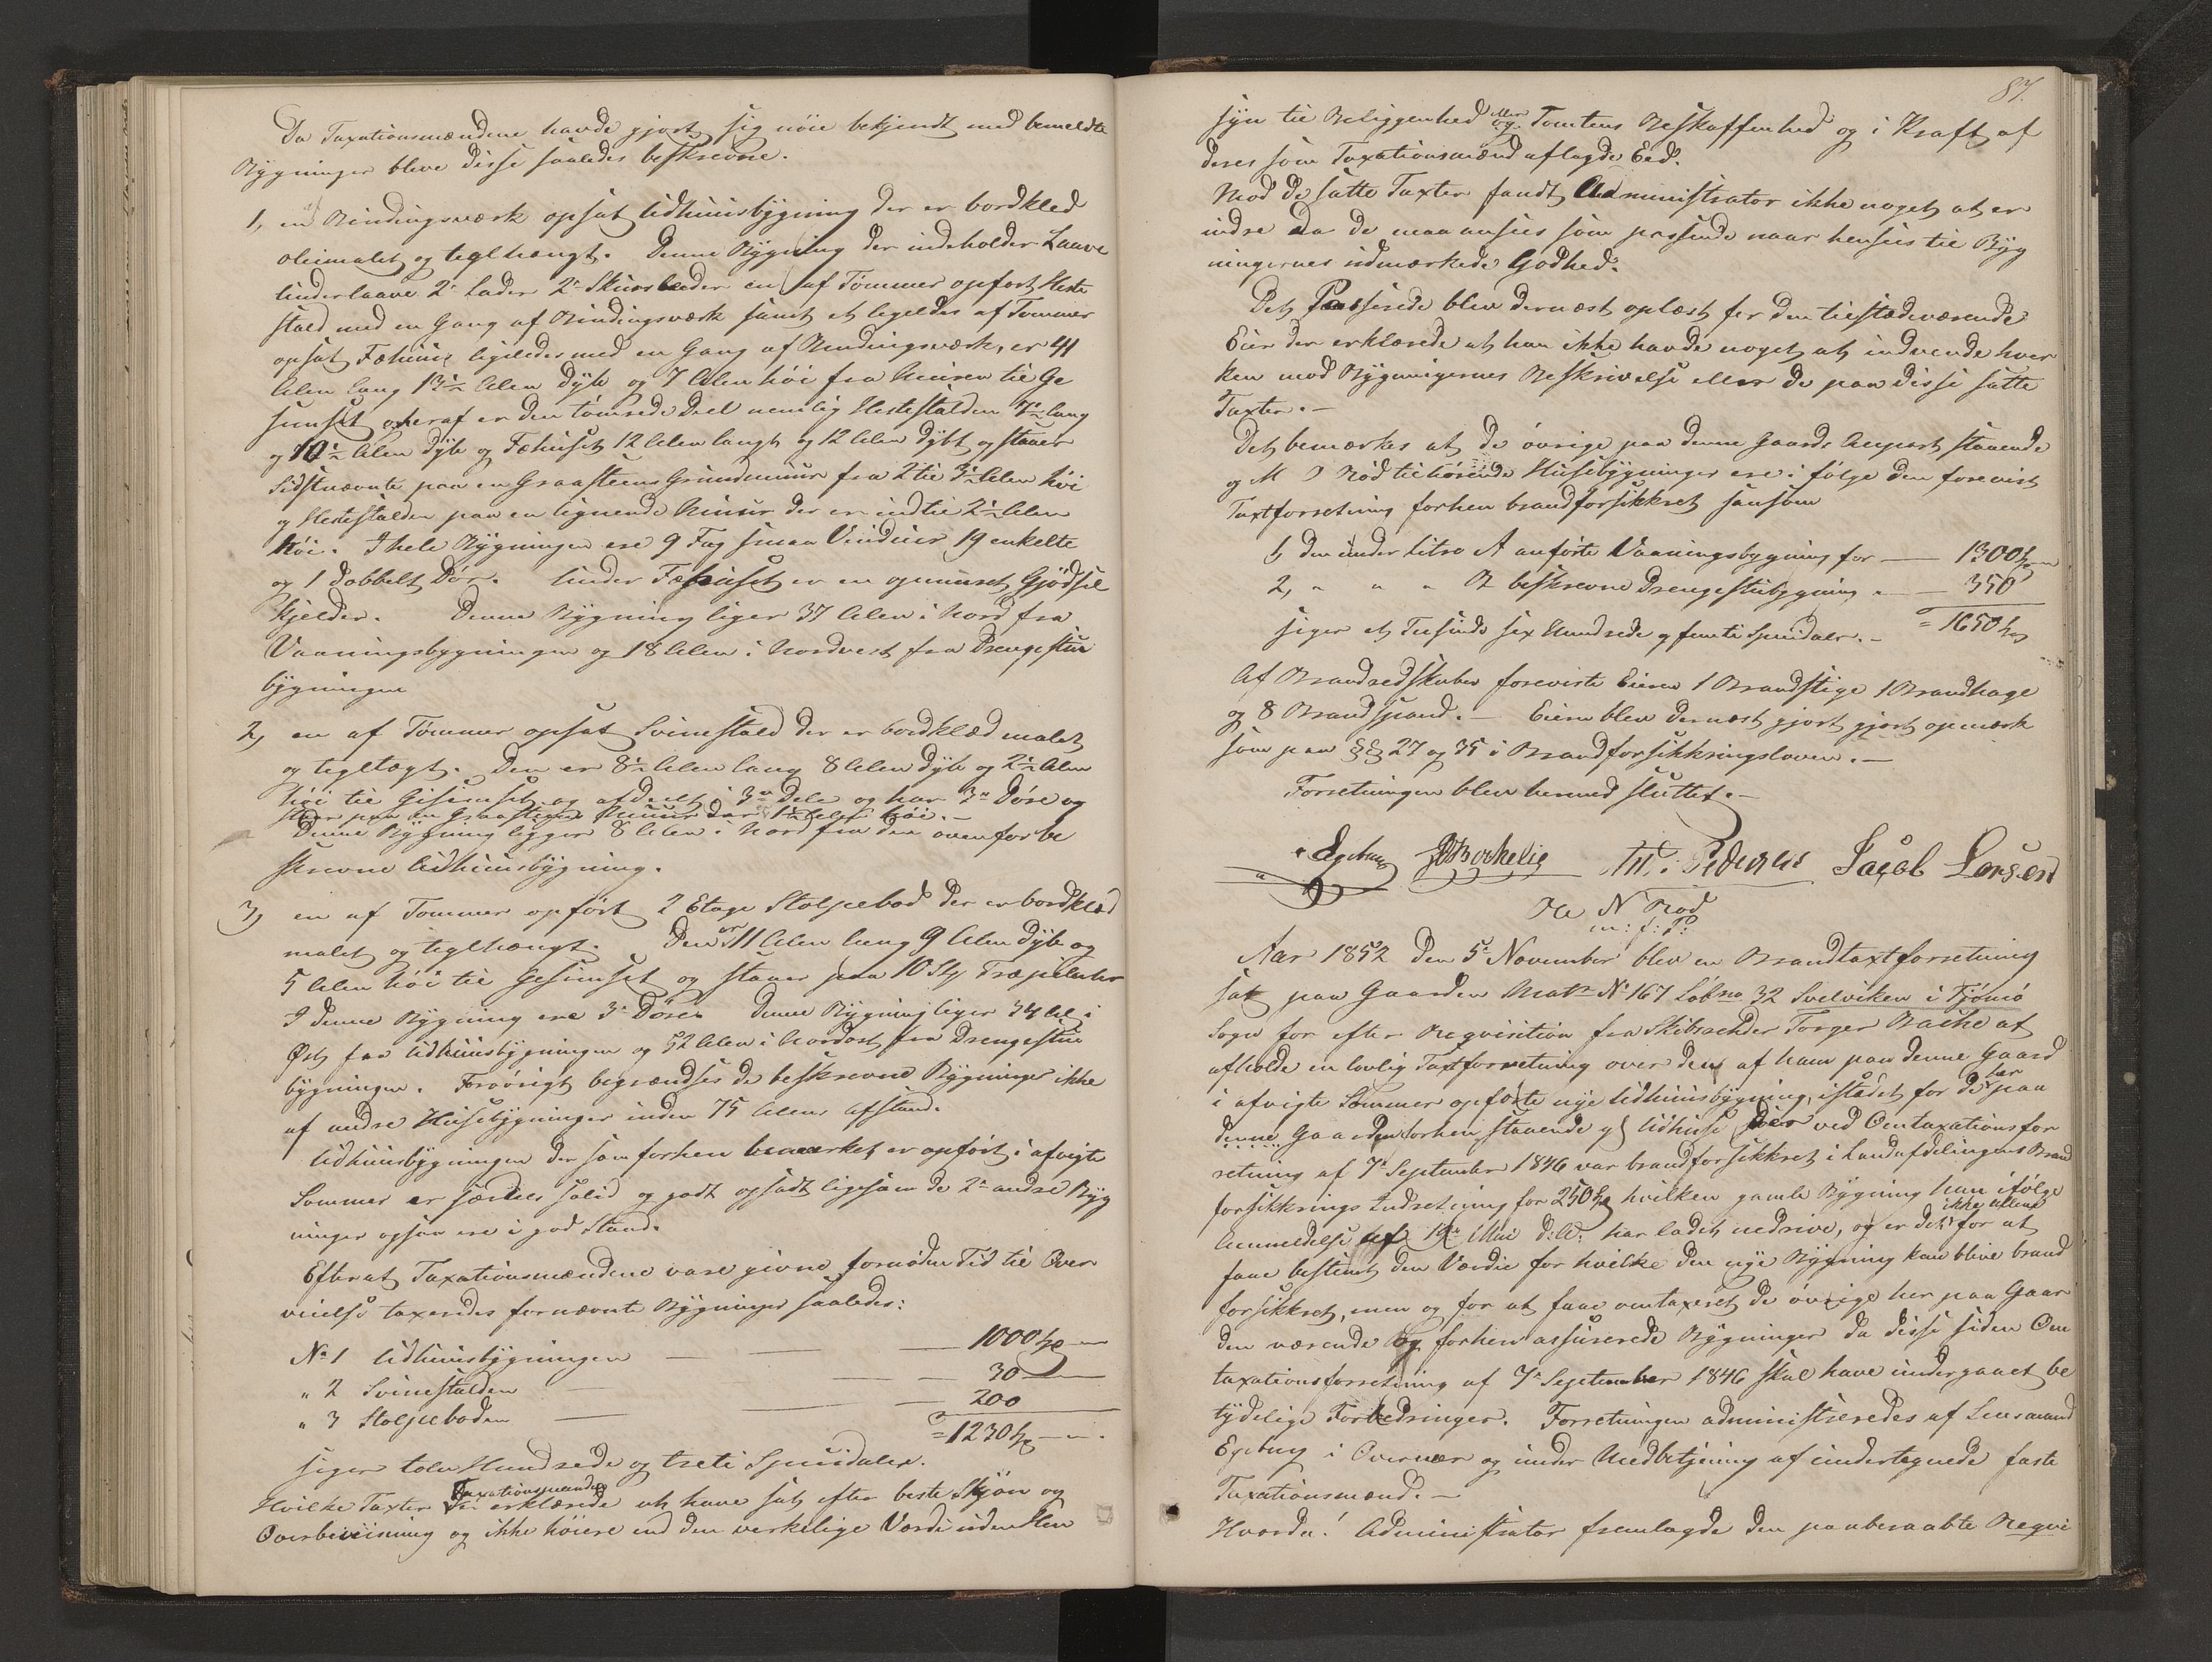 Da Taxationsmændene havde gjort sig nöie bekjendt med bemeldte
Bygninger bleve disse saaledes beskrevne.
1, en Bindingsværk opsat Udhuusbygning der er bordkled
oliemalet og teglhængt. Denne Bygning der indeholder Laave
Underlaave 2de Lader 2de Skuur en af Tømmer opført Heste
stald med en Gang af Bindingsværk samt et ligeledes af Tømmer
opsat Fæhuus ligeledes med en Gang af Bindingsværk, er 41
Alen lang 13½ Alen dÿb og 7 Alen höi fra Muren til Ge
simset, heraf er den tömrede Deel nemlig Hestestalden 7½ lang
og 10½ Alen dÿb og Fæhuset 12 Alen langt og 12 Alen dÿbt og staaer
Sidstnævnte paa en Graasteens Grundmuur fra 2 til 3½ Alen höi
og Hestestalden paa en lignende Muur der er indtil 2½ Alen
höi. I hele Bygningen ere 9 Fag smaa Vinduer 19 enkelte
og 1 dobbelt Dör. Under Fæhuset er en opmuret Gjödsel
kjelder. Denne Bygning liger 37 Alen i Nord fra
Vaaningsbygningen og 18 Alen i Nordvest fra Drengestue
bygningen
2, en af Tömmer opsat Svinestald der er bordklæd malet
og tegltægt. Den er 8½ Alen lang 8 Alen dÿb og 2½ Alen
höi til Gesimset og afdeelt i 3de Dele og har 3de Döre og
staar paa en Graasteens Muur der 1½ Alen höi.-
Denne Bygning ligger 8 Alen i Nord fra den ovenfor be
skrevne Udhuusbygning.
3, en af Tømmer opfört 2 Etage Stolpebod der er bordklæd
malet og teglhængt. Den er 11 Alen lang 9 Alen dÿb og
5 Alen höi til Gesimset og staaer paa 10 Stk Træpilarer
I denne Bygning ere 3de Döre. Denne Bygning liger 34 Al i
Öst fra Udhuusbygningen og 52 Alen i Nordost fra Drengestue
bygningen. Forövrigt begrændses de beskrevne Bygninger ikke
af andre Huusebygninger inden 75 Alens Afstand.
Udhuusbygningen der som forhen bemærket er opfört i afvigte
Sommer er særdeles solid og godt opsadt ligesom de 2de andre Byg
ninger ogsaa ere i god Stand.
Efterat Taxationsmændene vare givne fornöden Tid til Over
veielse taxeredes fornævnte Bygninger saaledes:
No 1 Udhuusbygningen — — 1000 Spd
" 2 Svinestalden — — 30 —
" 3 Stolpeboden — — 200
= 1230 Spd
siger tolv Hundrede og treti Speciedaler.
Hvilke Taxter Taxationsmændene erklærede at have sat efter beste Skjön og
Overbeviisning og ikke höiere end den verkelige Værdi uden Hen
87.
syn til Beliggenhed eller Tomtens Beskaffenhed og i Kraft af
deres som Taxationsmænd aflagde Eed.
Mod de satte Taxter fandt Administrator ikke noget at er
indre da de maa ansees som passende naar hensees til Byg
ningernes udmærkede Godhed.
Det Passerede blev dernæst oplæst for den tilstædeværende
Eier der erklærede at han ikke havde noget at indvende hver
ken mod Bygningernes Beskrivelse eller de paa disse satte
Taxter.-
Det bemærkes at de övrige paa denne Gaards Anpart staaende
og M O Röd tilhörende Huusebygninger ere i fölge den forevist
Taxtforretning forhen brandforsikkret saasom
1, den under Litra A anförte Vaaningsbygning for — 1300 Spd
2, " " " B beskrevne Drengestuebygning " — 350
siger et Tusinde sex Hundrede og femti Speciedaler.- = 1650 Spd
Af Brandredskaber foreviste Eieren 1 Brandstige 1 Brandhage
og 8 Brandspand.- Eieren blev dernæst gjort gjort opmærk
som paa §§ 27 og 35 i Brandforsikkringsloven.-
Forretningen blev hermed sluttet.-
Egeberg Bockelie M. Pedersen Jacob Larsen
Ole N Röd
m: f: P:
Aar 1852 den 5te November blev en Brandtaxtforretning
sat paa Gaarden Matr No 167 Löbno 32 Svelviken i Tjömö
Sogn for efter Reqvisition fra Skibsrheder Torger Bache at
afholde en lovlig Taxtforretning over den af ham paa denne Gaard
i afvigte Sommer opförte nye Udhuusbygning, istædet for det her paa
denne Gaarden forhen staaende gl Udhuus der ved Omtaxationsfor
retning af 7de September 1846 var brandforsikkret i Landafdelingens Brand
forsikkrings Indretning for 250 Spd hvilken gamle Bygning han ifölge
Anmeldelse af 19de Mai d: A: har ladet nedrive, og er det ikke allene for at
faae bestemt den Værdie for hvilke den nye Bygning kan blive brand
forsikkret, men og for at faae omtaxeret de övrige her paa Gaar
den værende og forhen assurerede Bygninger da disse siden Om
taxationsforretning af 7de September 1846 skal have undergaaet be
tydelige Forbedringer. Forretningen administreredes af Lensmand
Egeberg i Overvær og under Medbetjening af undertegnede faste
Taxationsmænd.-
Hvorda! Administrator fremlagde den paaberaabte Reqvi